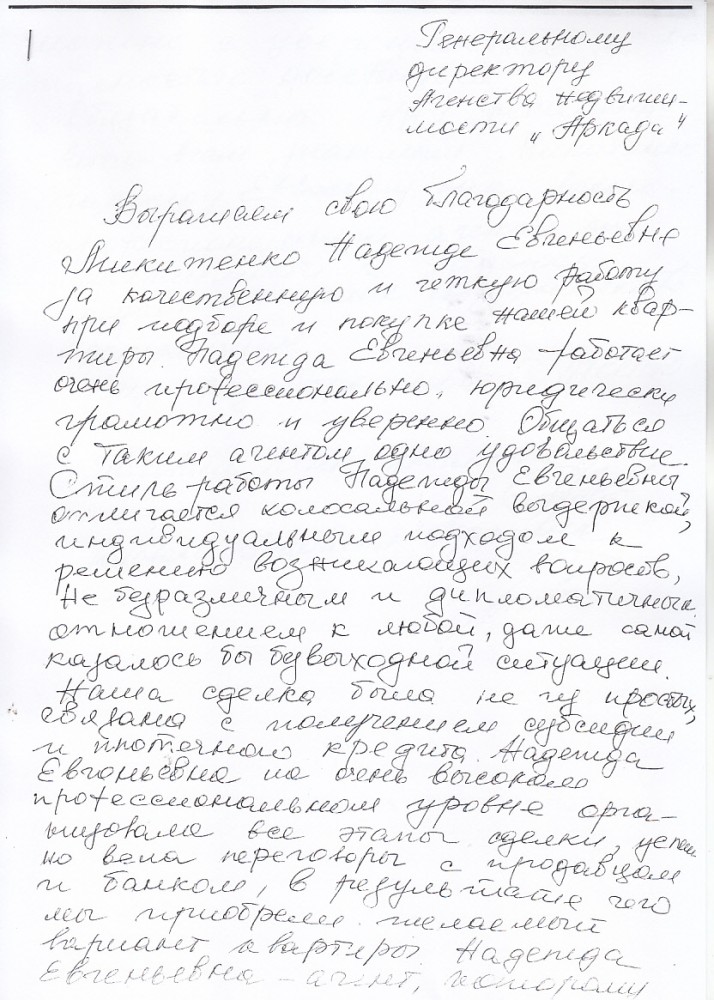 Генеральному
директору
Агенства недвижи-
мости „Аркада"
Выражаем свою благодарность
Микитенко Надежде Евгеньевне
за качественную и четкую работу
при подборе и покупке нашей квар-
тиры. Надежда Евгеньевна работает
очень профессионально, юридически
грамотно и уверенно. Общаться
с таким агентом одно удовольствие.
Стиль работы Надежды Евгеньевны
отличается колосальной выдержкой,
индивидуальным подходом к
решению возникающих вопросов,
не безразличным и дипломатичным
отношением к любой, даже самой
казалось бы безвыходной ситуации.
Наша сделка была не из простых,
связана с получением субсидии
и ипотечного кредита. Надежда
Евгеньевна на очень высоком
профессиональном уровне орга-
низовала все этапы сделки, успеш
но вела переговоры с продавцом
и банком, в результате чего
мы приобрели желаемый
вариант квартиры. Надежда
Евгеньевна - агент, которому